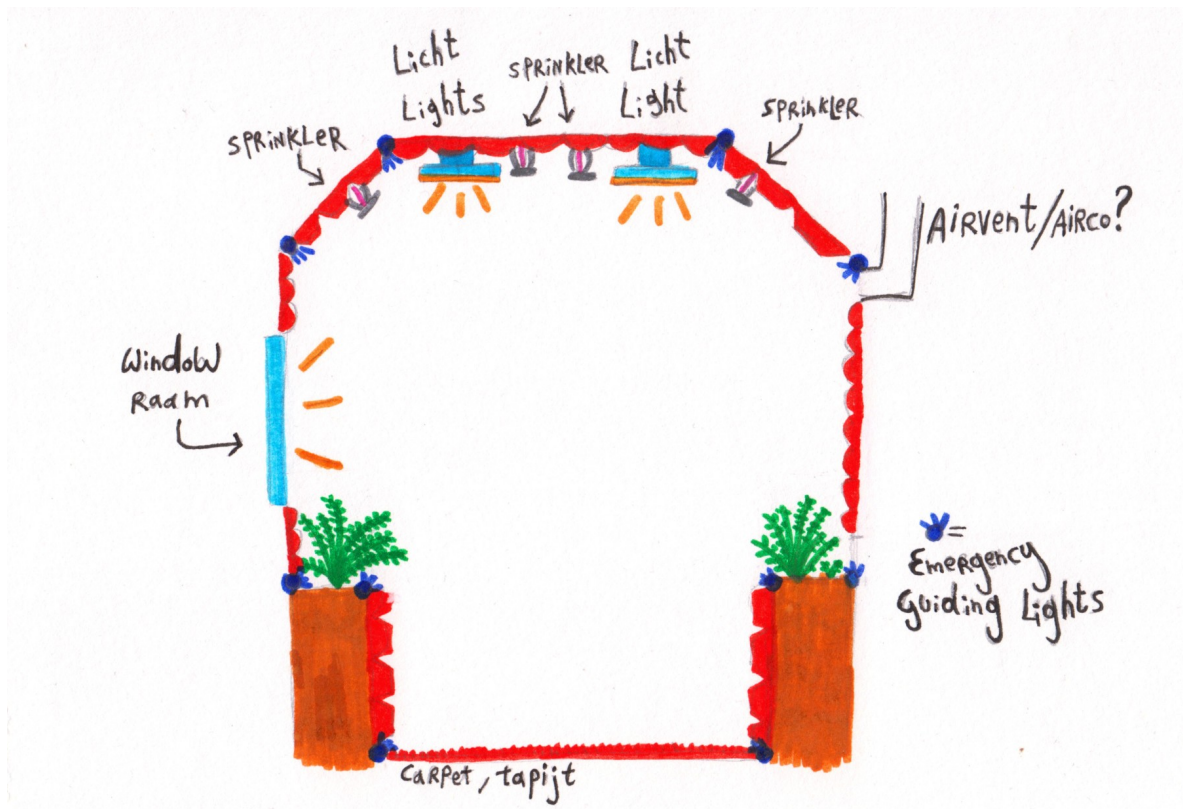 Licht
Lights
SPRiNKLER
Licht
Light
SPRiNKLER
SPRiNKLER
AiRvent/AiRco?
Window
Raam
=
EmeRgency
Guiding Lights
CaRPet, tapijt